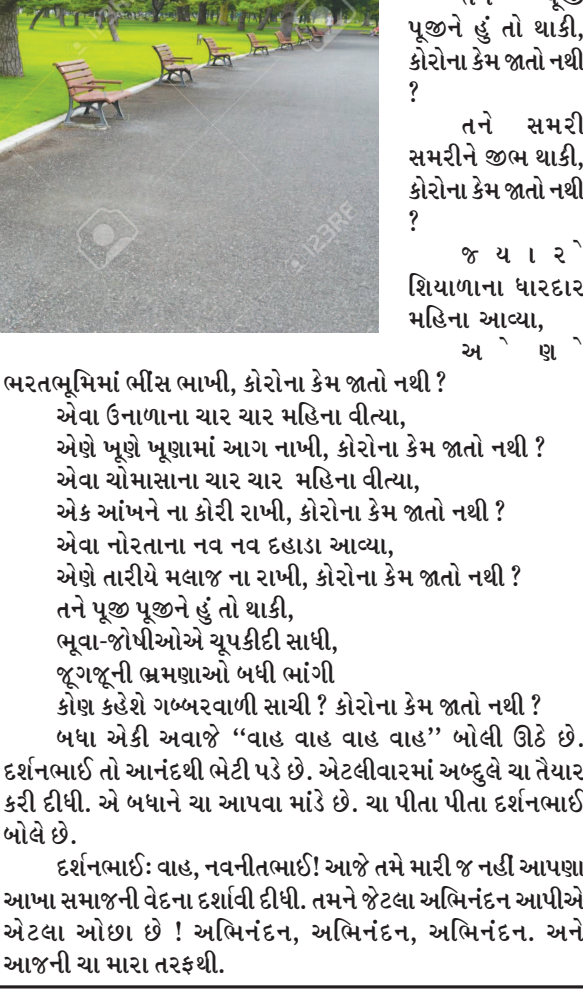 પૂજીને હું તો થાકી,
કોરોના કેમ જાતો નથી
?
તને સમરી
સમરીને જીભ થાકી,
કોરોના કેમ જાતો નથી
?
જયારે
શિયાળાના ધારદાર
મહિના આવ્યા,
એણે
ભરતભૂમિમાં ભીંસ ભાખી, કોરોના કેમ જાતો નથી ?
એવા ઉનાળાના ચાર ચાર મહિના વીત્યા,
એણે ખૂણે ખૂણામાં આગ નાખી, કોરોના કેમ જાતો નથી ?
એવા ચોમાસાના ચાર ચાર મહિના વીત્યા,
એક આંખને ના કોરી રાખી, કોરોના કેમ જાતો નથી ?
એવા નોરતાના નવ નવ દહાડા આવ્યા,
એણે તારીયે મલાજ ના રાખી, કોરોના કેમ જાતો નથી ?
તને પૂજી પૂજીને હું તો થાકી,
ભૂવા-જોષીઓએ ચૂપકીદી સાધી,
જૂગજૂની ભ્રમણાઓ બધી ભાંગી
કોણ કહેશે ગબ્બરવાળી સાચી ? કોરોના કેમ જાતો નથી ?
બધા એકી અવાજે ‘‘વાહ વાહ વાહ વાહ’’ બોલી ઊઠે છે.
દર્શનભાઈ તો આનંદથી ભેટી પડે છે. એટલીવારમાં અબ્દુલે ચા તૈયાર
કરી દીધી. એ બધાને ચા આપવા માંડે છે. ચા પીતા પીતા દર્શનભાઈ
બોલે છે.
દર્શનભાઈઃ વાહ, નવનીતભાઈ! આજે તમે મારી જ નહીં આપણા
આખા સમાજની વેદના દર્શાવી દીધી. તમને જેટલા અભિનંદન આપીએ
એટલા ઓછા છે ! અભિનંદન, અભિનંદન, અભિનંદન. અને
આજની ચા મારા તરફથી.
123RF